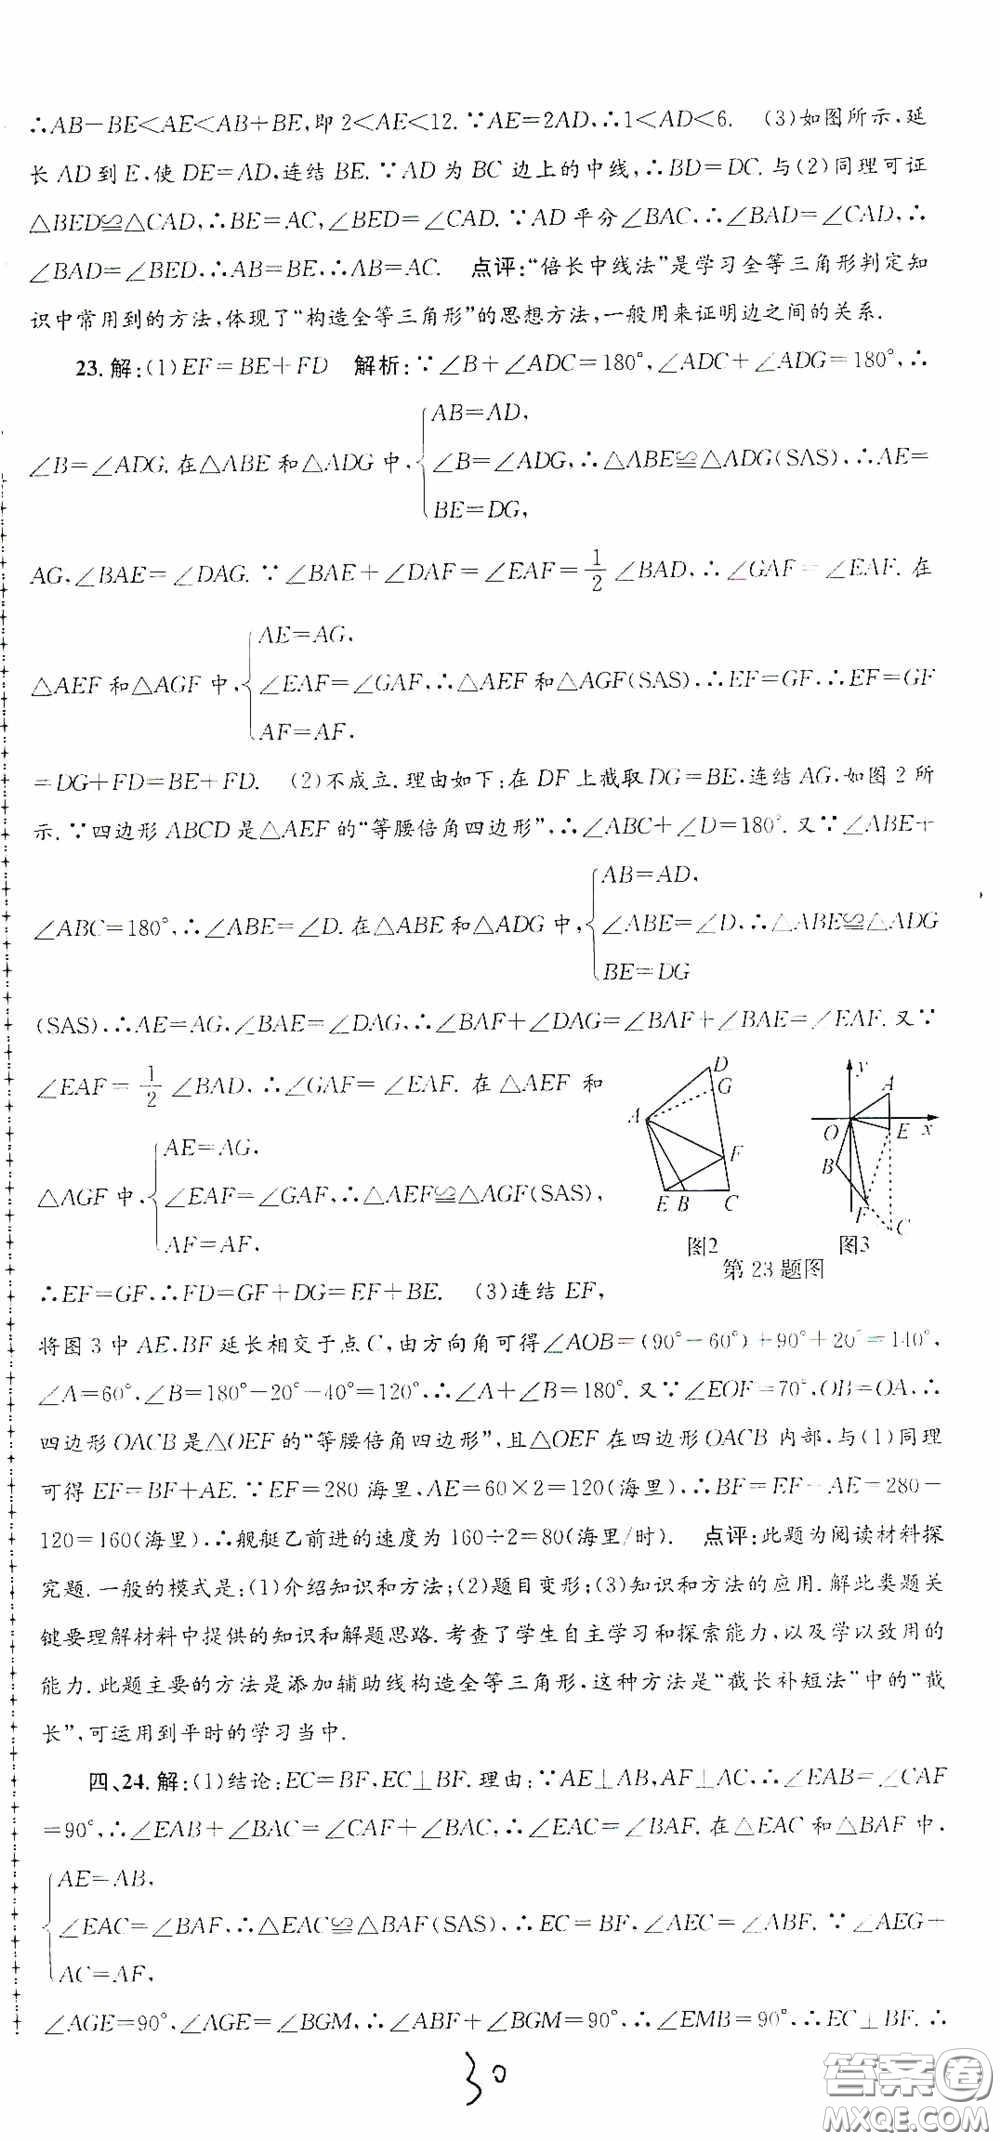 ∴AB－BE＜AE＜AB＋BE,即 2＜AE＜12.∵AE＝2AD,∴1＜AD＜6. (3)如图所示,延
长 AD 到 E,使 DE＝AD,连结 BE.∵AD 为 BC 边上的中线,∴BD＝DC.与(2)同理可证
△BED≌△CAD,∴BE＝AC,∠BED＝∠CAD.∵AD 平分∠BAC,∴∠BAD＝∠CAD,∴
∠BAD＝∠BED,∴AB＝BE,∴AB＝AC. 点评:“倍长中线法”是学习全等三角形判定知
识中常用到的方法,体现了“构造全等三角形”的思想方法,一般用来证明边之间的关系.
23.解:(1)EF＝BE＋FD 解析:∵∠B＋∠ADC＝180°,∠ADC＋∠ADG＝180°,∴
AB＝AD,
∠B＝∠ADG.在△ABE 和△ADG 中,{∠B＝∠ADG,∴△ABE≌△ADG(SAS),∴AE＝
BE＝DG,
AG,∠BAE＝∠DAG.∵∠BAE＋∠DAF＝∠EAF＝1/2∠BAD,∴∠GAF＝∠EAF.在
AE＝AG,
△AEF 和△AGF 中,{∠EAF＝∠GAF,∴△AEF 和△AGF(SAS),∴EF＝GF.∴EF＝GF
AF＝AF,
＝DG＋FD＝BE＋FD. (2)不成立.理由如下:在 DF 上截取 DG＝BE,连结 AG,如图 2 所
示.∵四边形 ABCD 是△AEF 的“等腰倍角四边形”,∴∠ABC＋∠D＝180°.又∵∠ABE＋
AB＝AD,
∠ABC＝180°,∴∠ABE＝∠D.在△ABE 和△ADG 中,{∠ABE＝∠D,∴△ABE≌△ADG
BE＝DG
(SAS),∴AE＝AG,∠BAE＝∠DAG,∴∠BAF＋∠DAG＝∠BAF＋∠BAE＝∠EAF.又∵
∠EAF＝1/2∠BAD,∴∠GAF＝∠EAF.在△AEF 和
AE＝AG,
△AGF 中,{∠EAF＝∠GAF,∴△AEF≌△AGF(SAS),
AF＝AF,
∴EF＝GF,∴FD＝GF＋DG＝EF＋BE. (3)连结 EF,
D
G
A
F
E B C
图2
y
A
O E x
B
F C
图3
第 23 题图
将图 3 中 AE,BF 延长相交于点 C,由方向角可得∠AOB＝(90°－60°)＋90°＋20°＝140°,
∠A＝60°,∠B＝180°－20°－40°＝120°,∴∠A＋∠B＝180°.又∵∠EOF＝70°,OB＝OA,∴
四边形 OACB 是△OEF 的“等腰倍角四边形”,且△OEF 在四边形 OACB 内部,与(1)同理
可得 EF＝BF＋AE.∵EF＝280 海里,AE＝60×2＝120(海里),∴BF＝EF－AE＝280－
120＝160(海里),∴舰艇乙前进的速度为 160÷2＝80(海里/时). 点评:此题为阅读材料探
究题.一般的模式是:(1)介绍知识和方法;(2)题目变形;(3)知识和方法的应用.解此类题关
键要理解材料中提供的知识和解题思路.考查了学生自主学习和探索能力,以及学以致用的
能力.此题主要的方法是添加辅助线构造全等三角形,这种方法是“截长补短法”中的“截
长”,可运用到平时的学习当中.
四、24.解:(1)结论:EC＝BF,EC⊥BF.理由:∵AE⊥AB,AF⊥AC,∴∠EAB＝∠CAF
＝90°,∴∠EAB＋∠BAC＝∠CAF＋∠BAC,∴∠EAC＝∠BAF.在△EAC 和△BAF 中,
AE＝AB,
{∠EAC＝∠BAF,∴△EAC≌△BAF(SAS),∴EC＝BF,∠AEC＝∠ABF.∵∠AEG＋
AC＝AF,
∠AGE＝90°,∠AGE＝∠BGM,∴∠ABF＋∠BGM＝90°,∴∠EMB＝90°,∴EC⊥BF.∴
30
答案卷
MXQE.COM